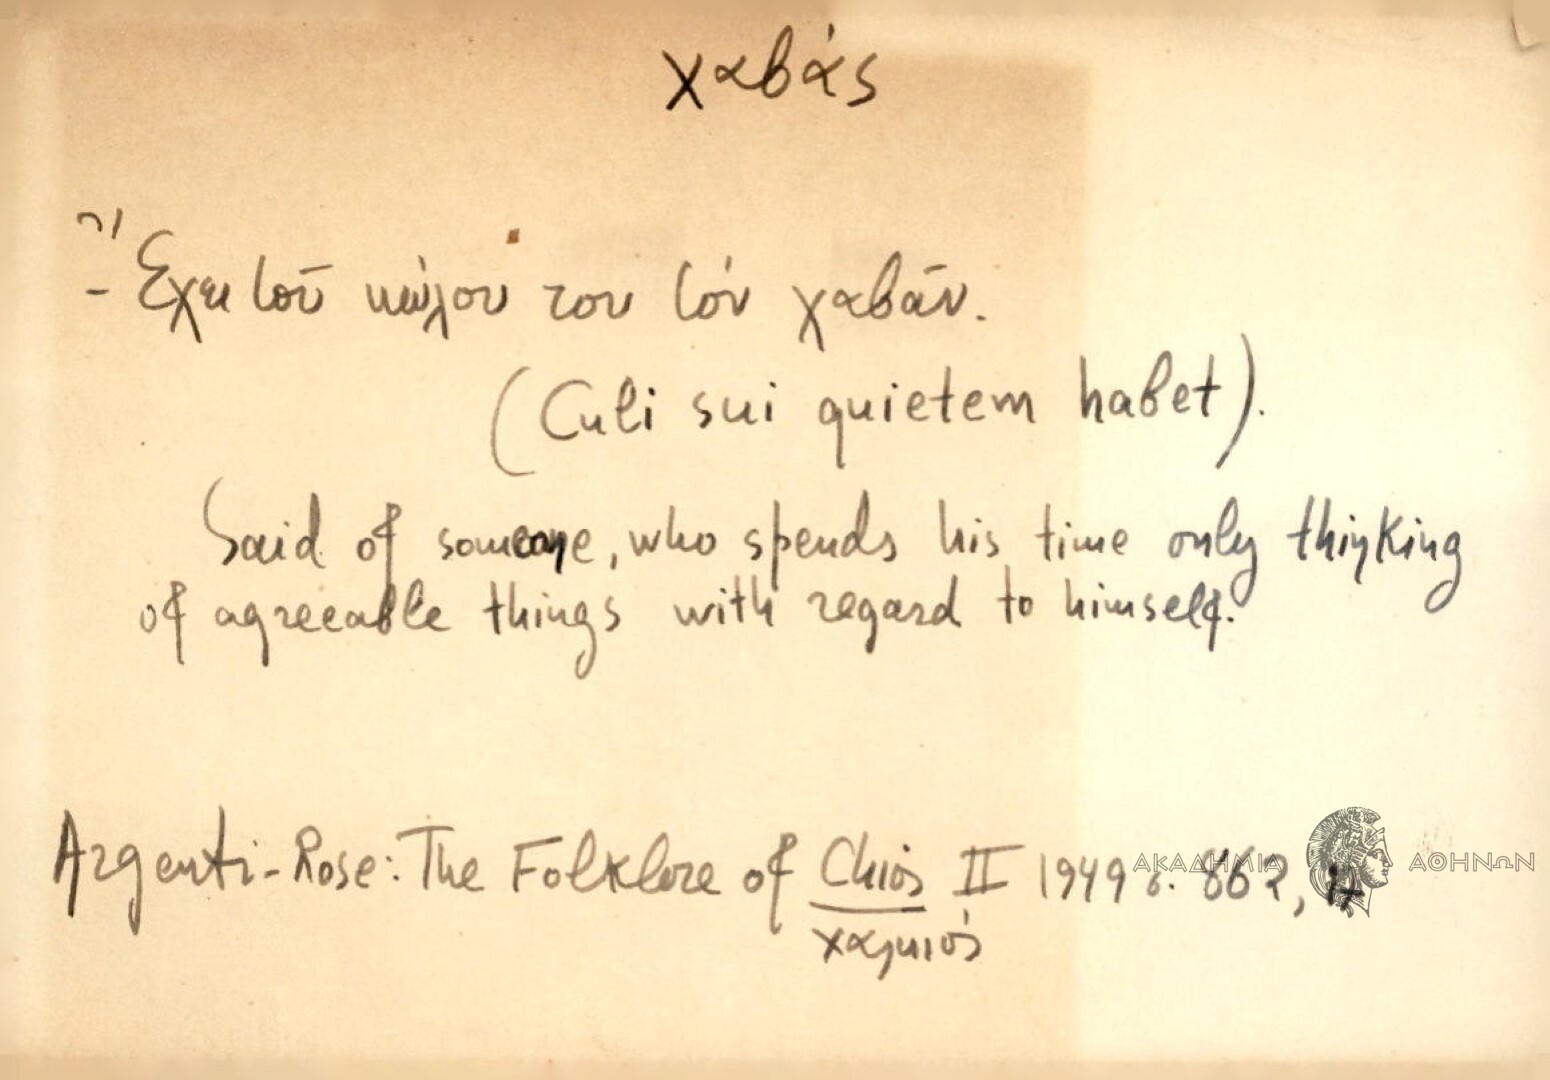 χαβάς
- Ἔχει τοῦ κώλου του τόν χαβᾶν.
(Culi sui quietem habet).
Said of someone, who spends his time only thinking
of agreeable things with regard to himself.
Argenti-Rose: The Folklore of Chios II 1949 σ. 862,
ΑΚΑΔΗΜΙΑ ΑΘΗΝΩΝ